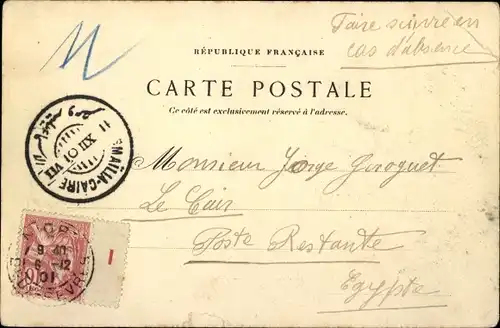 Faire suivre en
cas d'absence
RÉPUBLIQUE FRANÇAISE
CARTE POSTALE
Ce côté est exclusivement réservé à l'adresse.
11 XII 01
SMAÏLIA-CAIRE
VII
Monsieur Jorge
Le Cair
Poste Restante
Egypte
1